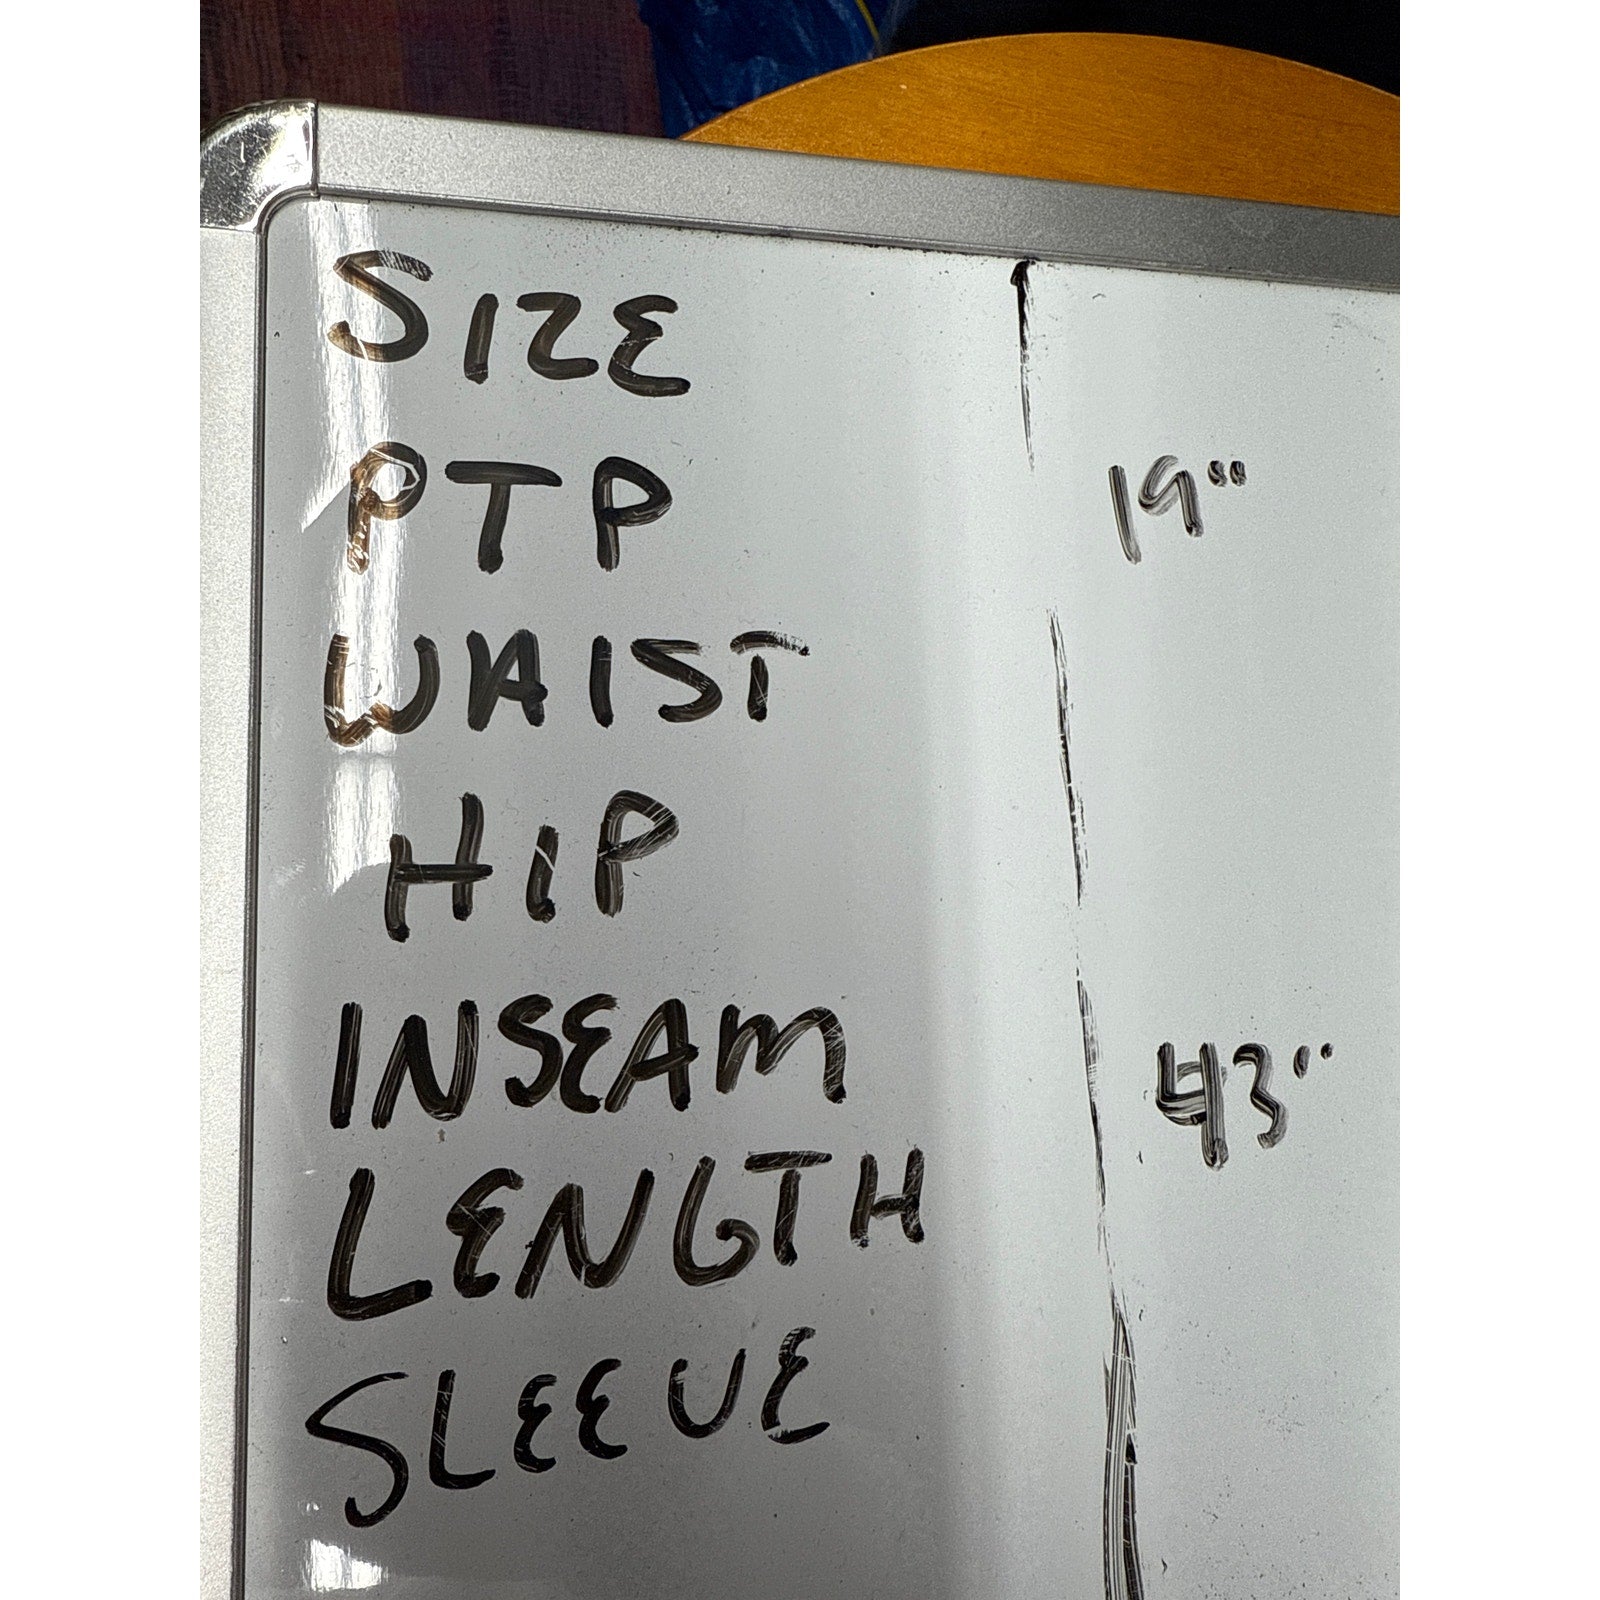 SIZE
PTP 19"
WAIST
HIP
INSEAM 43"
LENGTH
SLEEVE